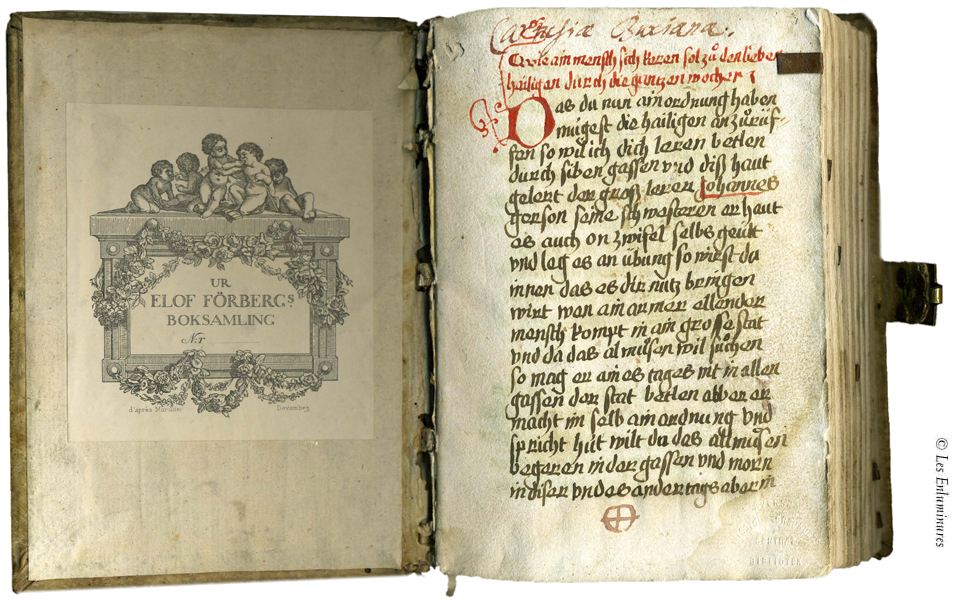 UR
ELOF FÖRBERGS
BOKSAMLING
Nr
d'après Marillier
Devambez
Cartusia Buxiana.
O wie ain mensch sich keren sol zů den lieben
hailigen durch die gantzen wochen
Das du nun ain ordnung haben
mügest die hailigen an zů rüf-
fen so wil ich dich leren betlen
durch siben gassen vnd diß haut
gelert der groß lerer Johannes
gerson seine schwesteren er haut
es auch on zwifel selbs geübt
vnd leg es an übung so wirst du
innen das es dir nutz bringen
wirt wen ain armer ellender
mensch kompt in ain grosse stat
vnd da das almůsen wil sůchen
so mag er aines tages nit in allen
gassen der stat betlen aber er
macht im selb ain ordnung vnd
spricht hüt wilt du das allmůsen
begeren in der gassen vnd morn
in diser vnd es ander tags aber in
ZENTRAL
BIBLIOTEK
© Les Enluminures